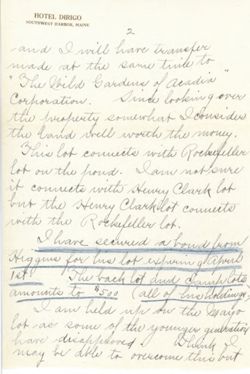 HOTEL DIRIGO
SOUTHWEST HARBOR, MAINE
2
-and I will have transfer
made at the same time to
"The Wild Gardens of Acadia"
Corporation. Since looking over
the property somewhat I consider
the land well worth the money.
This lot connects with Rockefeller
lot on the pond. I am not sure
it connects with Henry Clark lot
but the Henry Clark lot connects
with the Rockefeller lot.
I have secured a bond from
Higgins for his lot expiring April
1st. The back lot and
amounts to $500 (all of his holdings)
I am held up on the Mayo
lot as some of the younger generation
have disappeared. Think I
may be able to overcome this but